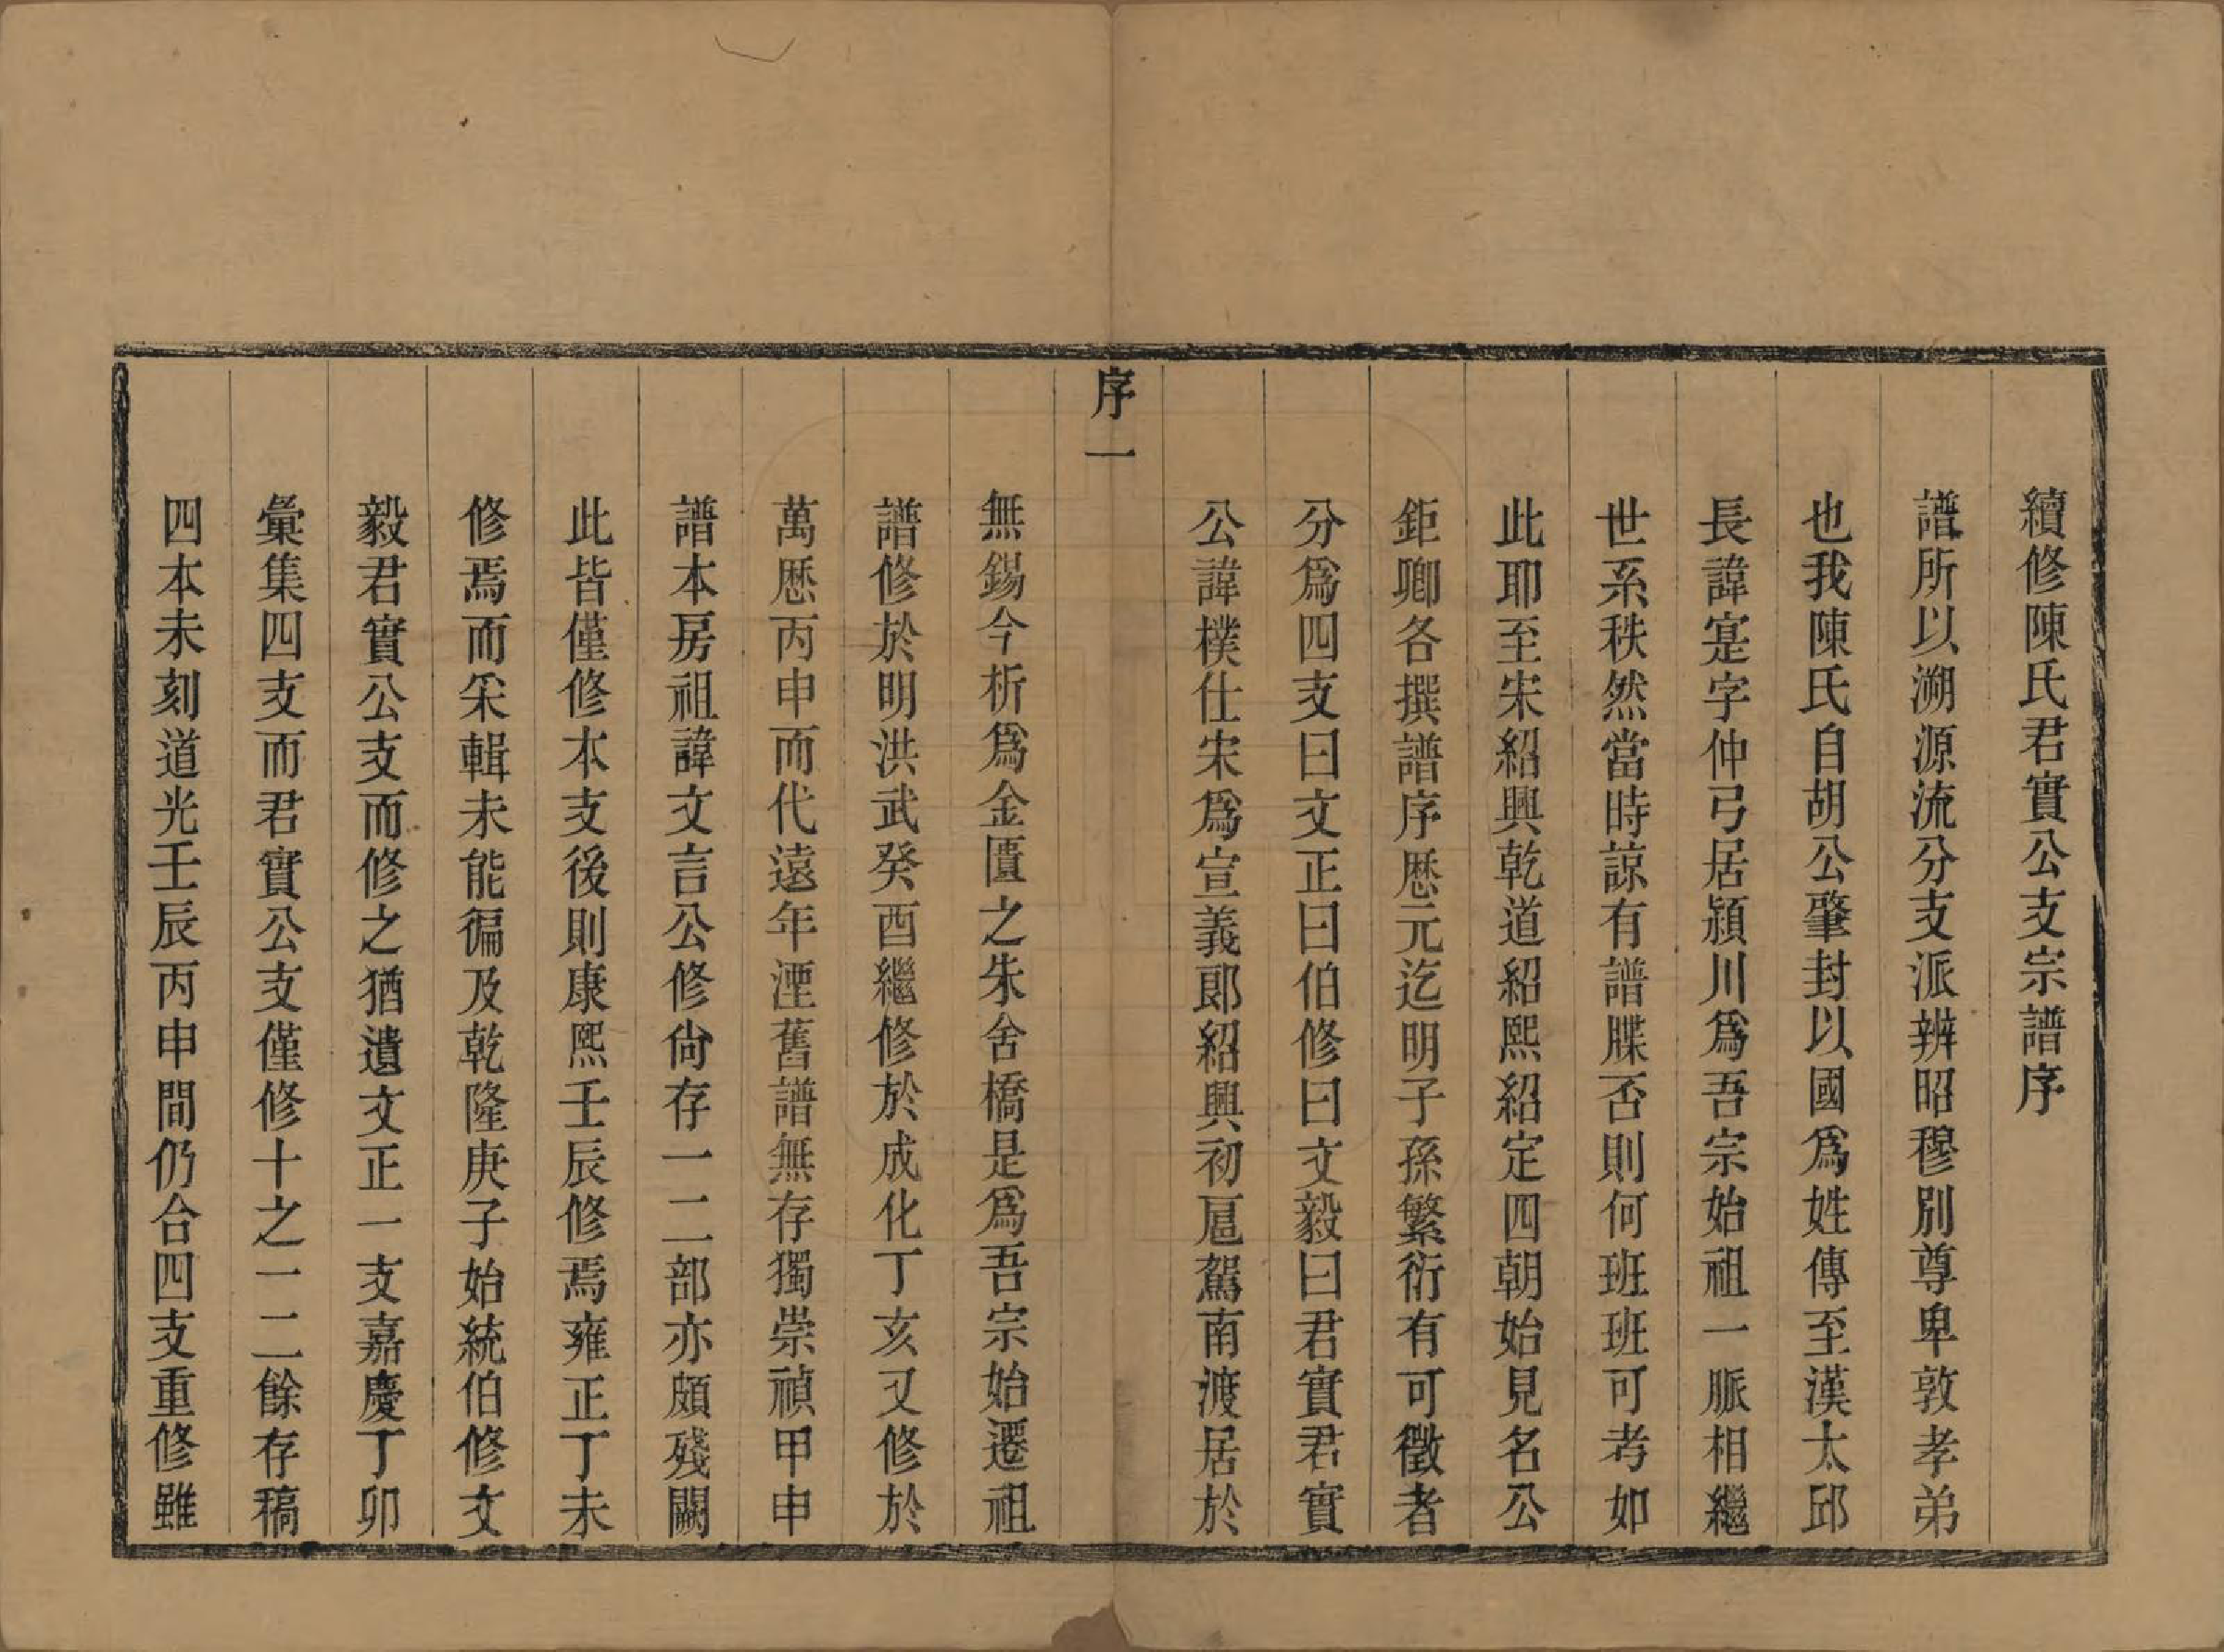 續修陳氏君實公支宗譜序
譜所以溯源流分支派辨昭穆別尊卑敦孝弟
也我陳氏自胡公肇封以國爲姓傳至漢太邱
長諱寔字仲弓居潁川爲吾宗始祖一脈相繼
世系秩然當時諒有譜牒否則何班班可考如
此耶至宋紹興乾道紹熙紹定四朝始見名公
鉅卿各撰譜序歷元迄明子孫繁衍有可徵者
分爲四支曰文正曰伯修曰文毅曰君實君實
公諱樸仕宋爲宣義郞紹興初扈駕南渡居於
序一
無錫今析爲金匱之朱舍橋是爲吾宗始遷祖
譜修於明洪武癸酉繼修於成化丁亥又修於
萬厯丙申而代遠年湮舊譜無存獨崇禎甲申
譜本房祖諱文言公修尙存一二部亦頗殘闕
此皆僅修本支後則康熙壬辰修焉雍正丁未
修焉而采輯未能徧及乾隆庚子始統伯修文
毅君實公支而修之猶遺文正一支嘉慶丁卯
彙集四支而君實公支僅修十之一二餘存稿
四本未刻道光壬辰丙申間仍合四支重修雖